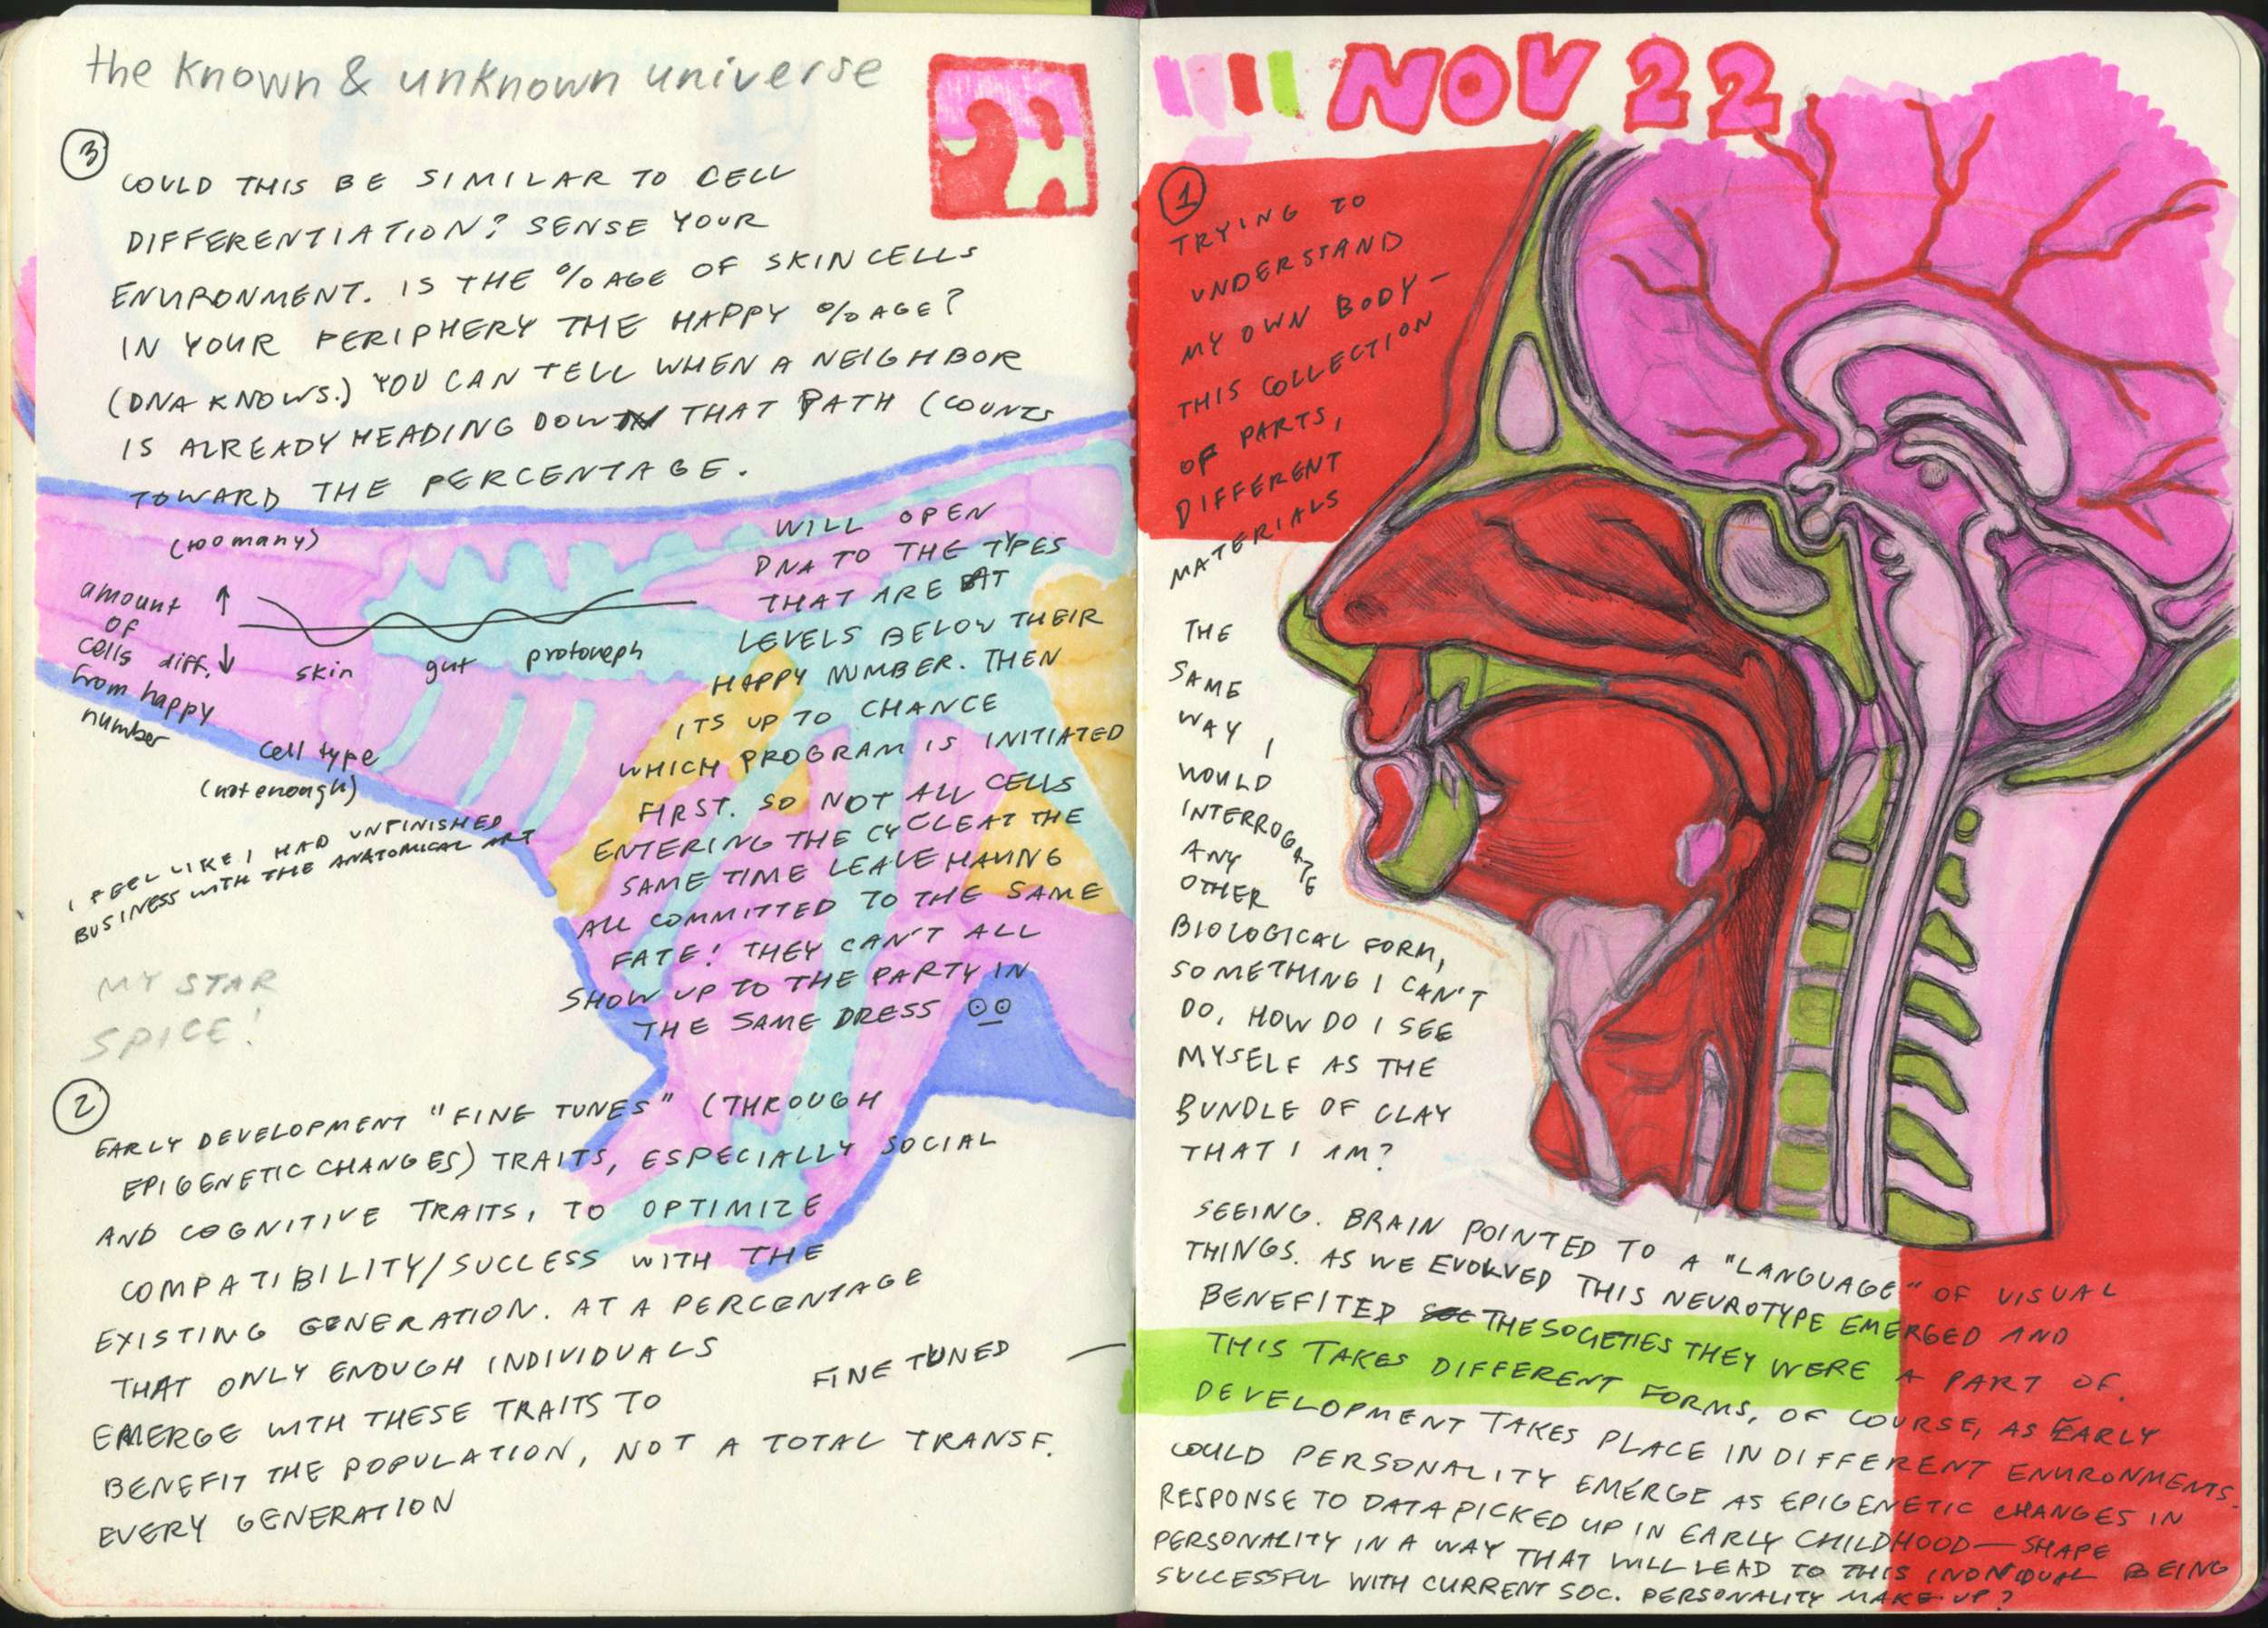 the known & unknown universe
3
COULD THIS BE SIMILAR TO CELL
DIFFERENTIATION? SENSE YOUR
ENVIRONMENT. IS THE %AGE OF SKIN CELLS
IN YOUR PERIPHERY THE HAPPY %AGE?
(DNA KNOWS.) YOU CAN TELL WHEN A NEIGHBOR
IS ALREADY HEADING DOWN THAT PATH (COUNTS
TOWARD THE PERCENTAGE.
WILL OPEN
DNA TO THE TYPES
THAT ARE AT
LEVELS BELOW THEIR
HAPPY NUMBER. THEN
ITS UP TO CHANCE
WHICH PROGRAM IS INITIATED
FIRST. SO NOT ALL CELLS
ENTERING THE CYCLE AT THE
SAME TIME LEAVE HAVING
ALL COMMITTED TO THE SAME
FATE! THEY CAN'T ALL
SHOW UP TO THE PARTY IN
THE SAME DRESS
(too many)
amount
of
cells diff.
from happy
number
skin gut protoneph
cell type
(not enough)
I FEEL LIKE I HAD UNFINISHED
BUSINESS WITH THE ANATOMICAL ART
MY STAR
SPICE!
2
EARLY DEVELOPMENT "FINE TUNES" (THROUGH
EPIGENETIC CHANGES) TRAITS, ESPECIALLY SOCIAL
AND COGNITIVE TRAITS, TO OPTIMIZE
COMPATIBILITY/SUCCESS WITH THE
EXISTING GENERATION. AT A PERCENTAGE
THAT ONLY ENOUGH INDIVIDUALS
EMERGE WITH THESE TRAITS TO
BENEFIT THE POPULATION, NOT A TOTAL TRANSF.
EVERY GENERATION
FINE TUNED —
NOV 22
1
TRYING TO
UNDERSTAND
MY OWN BODY —
THIS COLLECTION
OF PARTS,
DIFFERENT
MATERIALS
THE
SAME
WAY I
WOULD
INTERROGATE
ANY
OTHER
BIOLOGICAL FORM,
SOMETHING I CAN'T
DO. HOW DO I SEE
MYSELF AS THE
BUNDLE OF CLAY
THAT I AM?
SEEING. BRAIN POINTED TO A "LANGUAGE" OF VISUAL
THINGS. AS WE EVOLVED THIS NEUROTYPE EMERGED AND
BENEFITED THE SOCIETIES THEY WERE A PART OF.
THIS TAKES DIFFERENT FORMS, OF COURSE, AS EARLY
DEVELOPMENT TAKES PLACE IN DIFFERENT ENVIRONMENTS.
COULD PERSONALITY EMERGE AS EPIGENETIC CHANGES IN
RESPONSE TO DATA PICKED UP IN EARLY CHILDHOOD — SHAPE
PERSONALITY IN A WAY THAT WILL LEAD TO THIS INDIVIDUAL BEING
SUCCESSFUL WITH CURRENT SOC. PERSONALITY MAKE-UP?